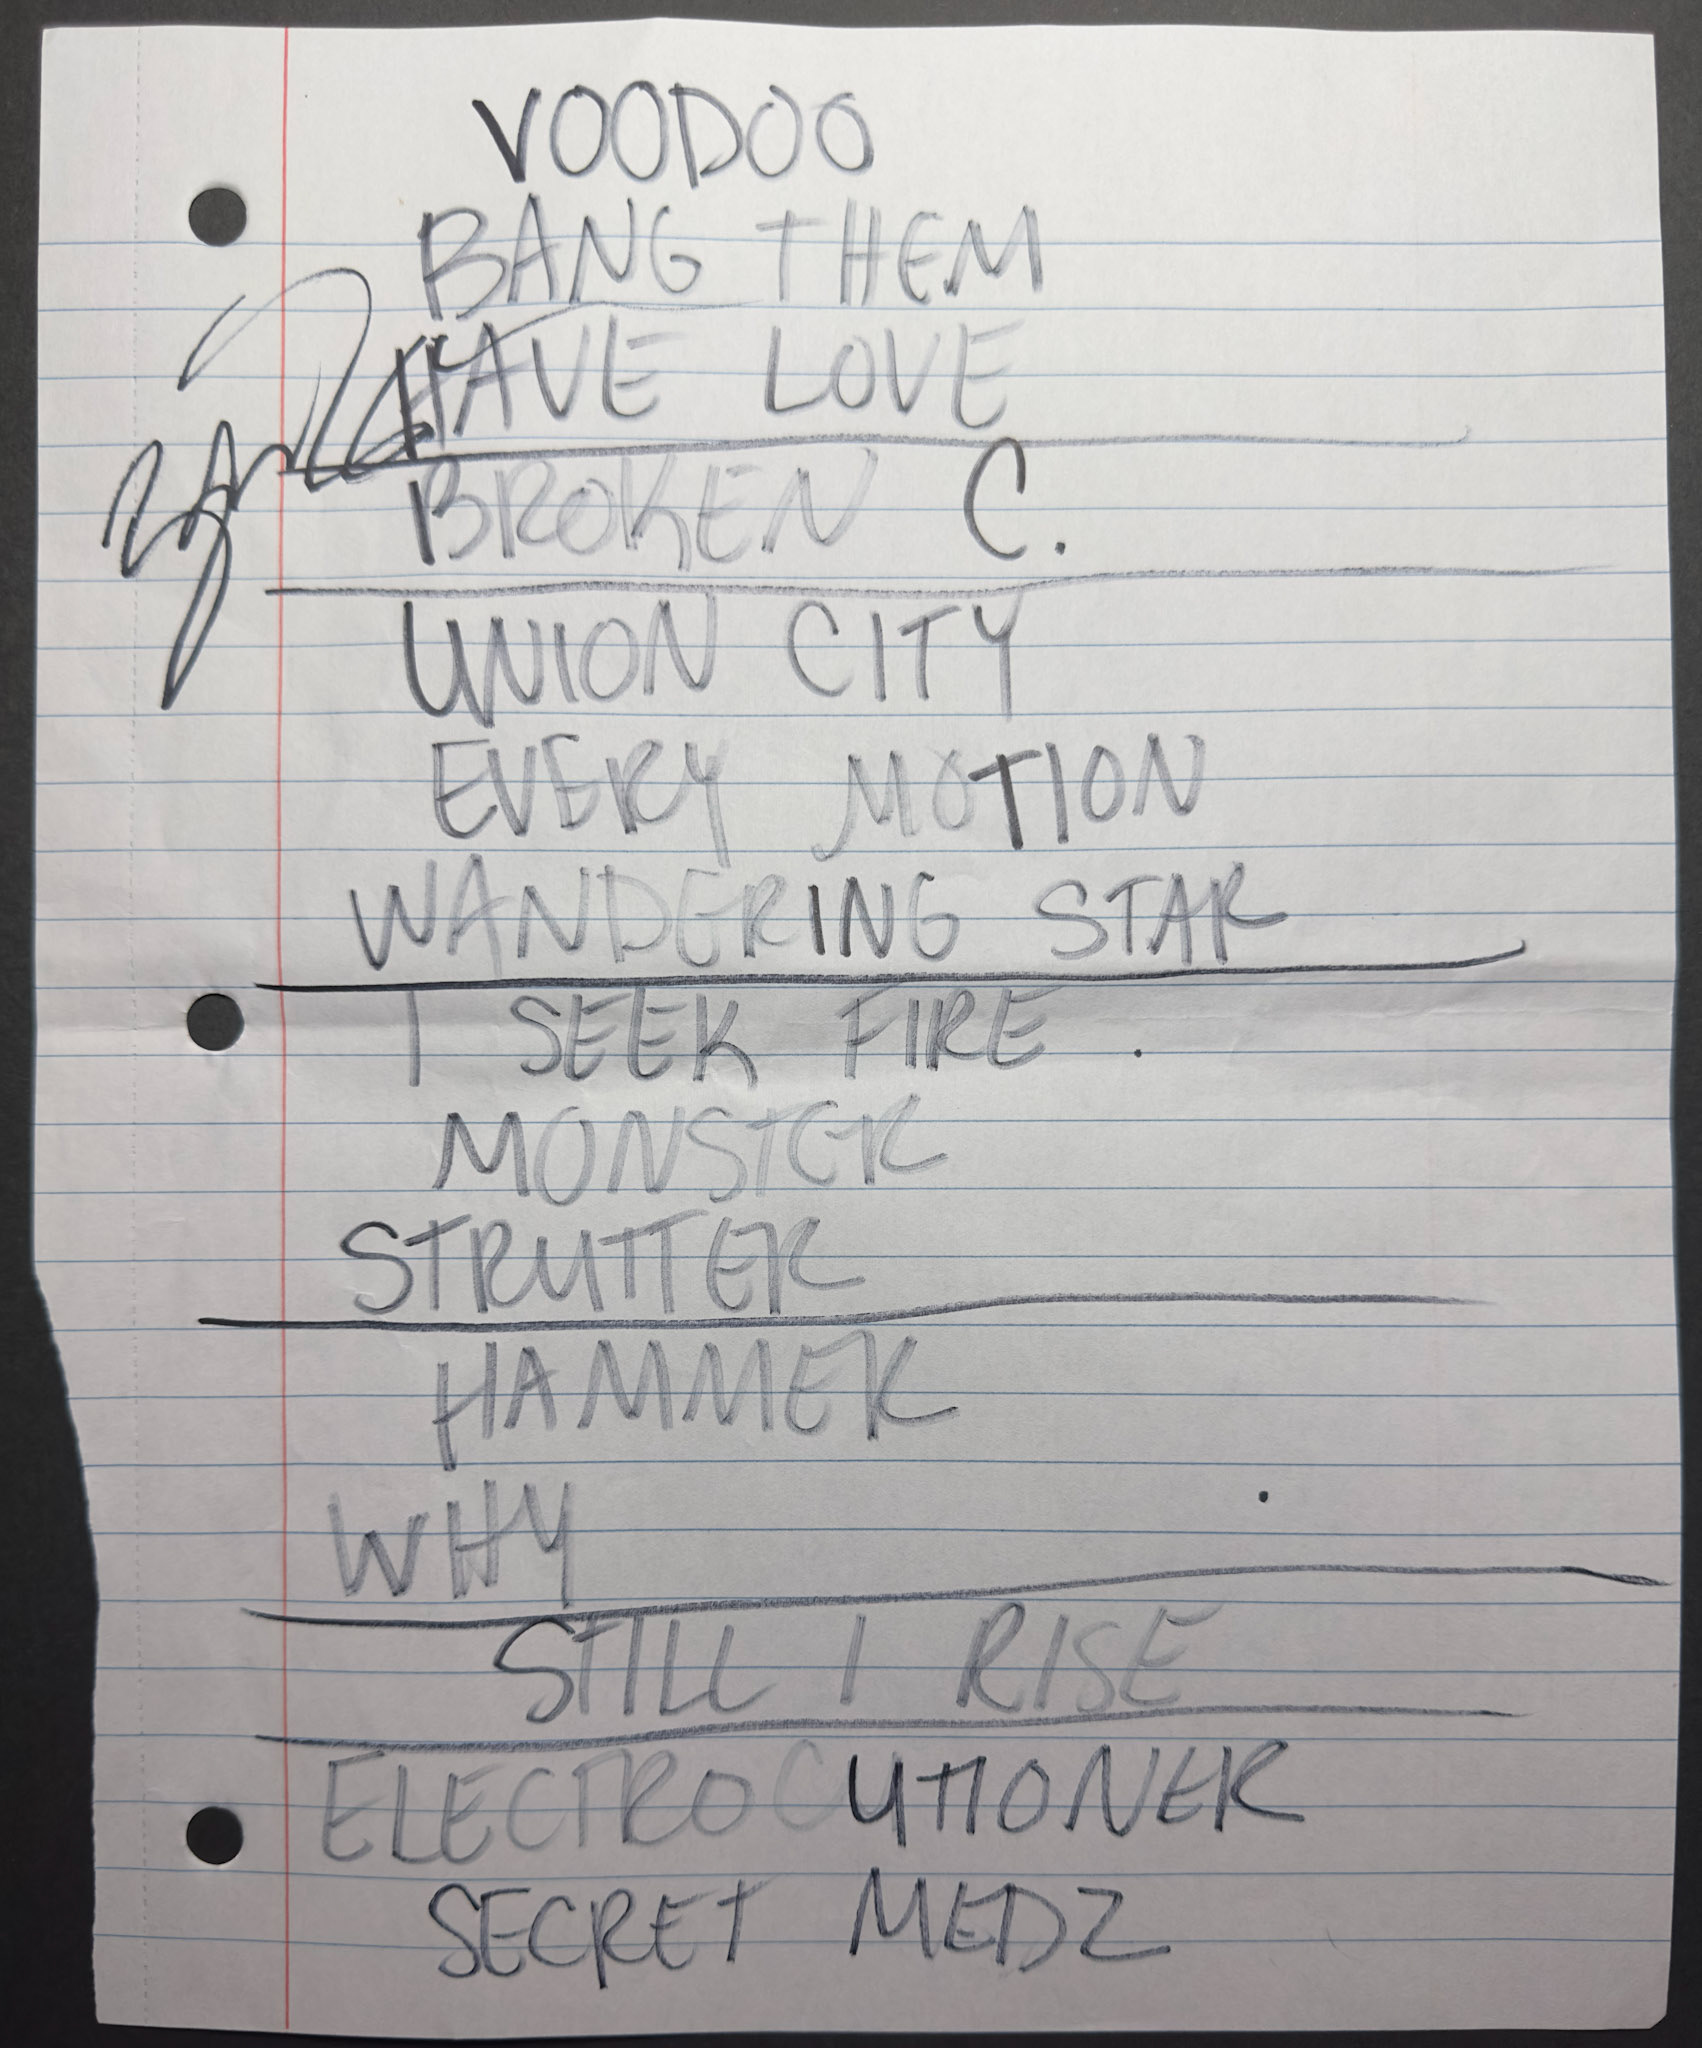 VOODOO
BANG THEM
HAVE LOVE
BROKEN C.
UNION CITY
EVERY MOTION
WANDERING STAR
I SEEK FIRE
MONSTER
STRUTTER
HAMMER
WHY
STILL I RISE
ELECTROCUTIONER
SECRET MEDZ